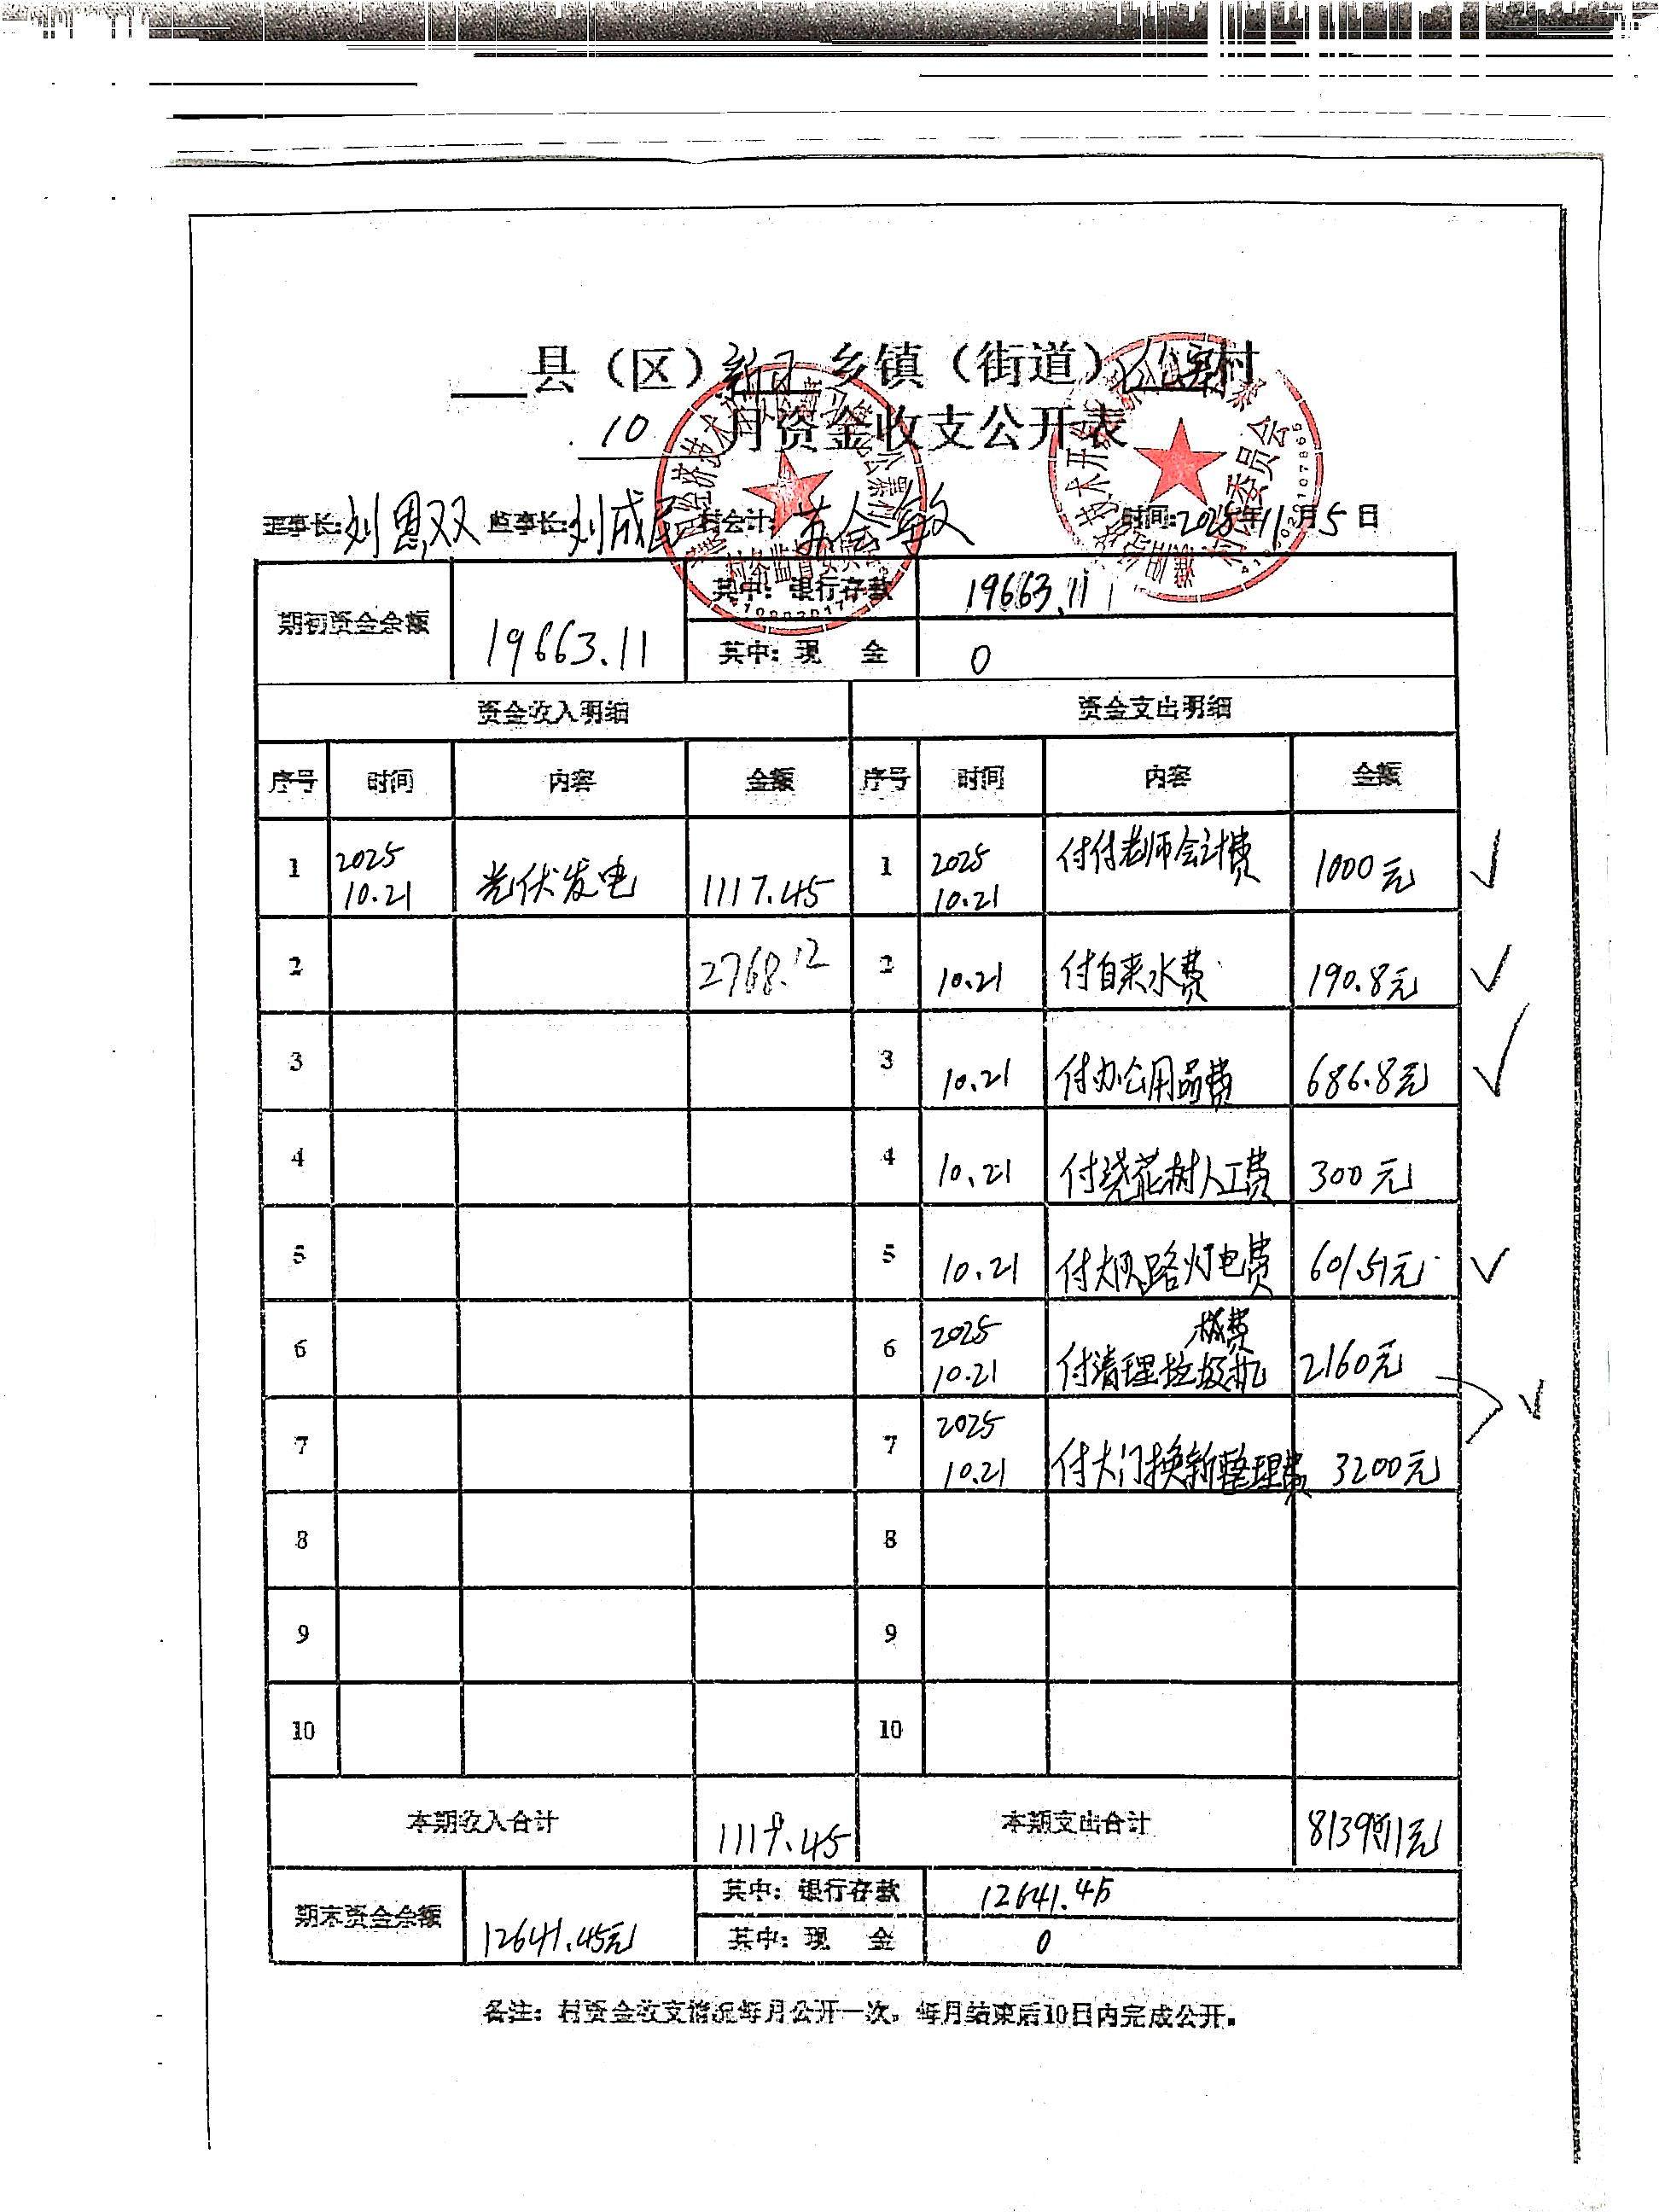 县（区） 乡镇（街道） 村
10 月资金收支公开表
理事长:刘恩双 监事长:刘成民 村会计: 敏 时间:2025年11月5日
期初资金余额 19663.11 其中：银行存款 19663.11
其中：现 金 0
资金收入明细 资金支出明细
序号 时间 内容 金额 序号 时间 内容 金额
1 2025 10.21 光伏发电 1117.45 1 2025 10.21 付付老师会计费 1000元
2 2768.12 2 10.21 付自来水费 190.8元
3 3 10.21 付办公用品费 686.8元
4 4 10.21 付浇花树人工费 300元
5 5 10.21 付大队路灯电费 601.51元
6 6 2025 10.21 付清理垃圾机械费 2160元
7 7 2025 10.21 付大门换新整理费 3200元
8 8
9 9
10 10
本期收入合计 1117.45 本期支出合计 8139.11元
期末资金余额 12641.45元 其中：银行存款 12641.45
其中：现 金 0
备注：村资金收支情况每月公开一次，每月结束后10日内完成公开。